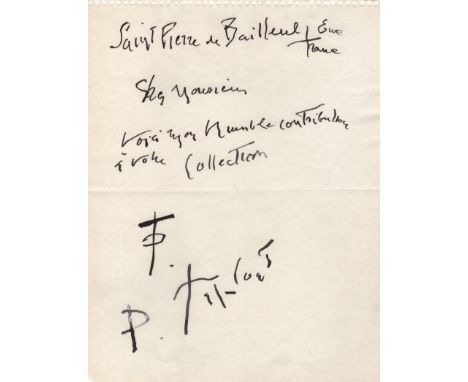 Saint Pierre de Bailleul Eure
France
Cher Monsieur
Voici mon humble contribution
à votre Collection
P.